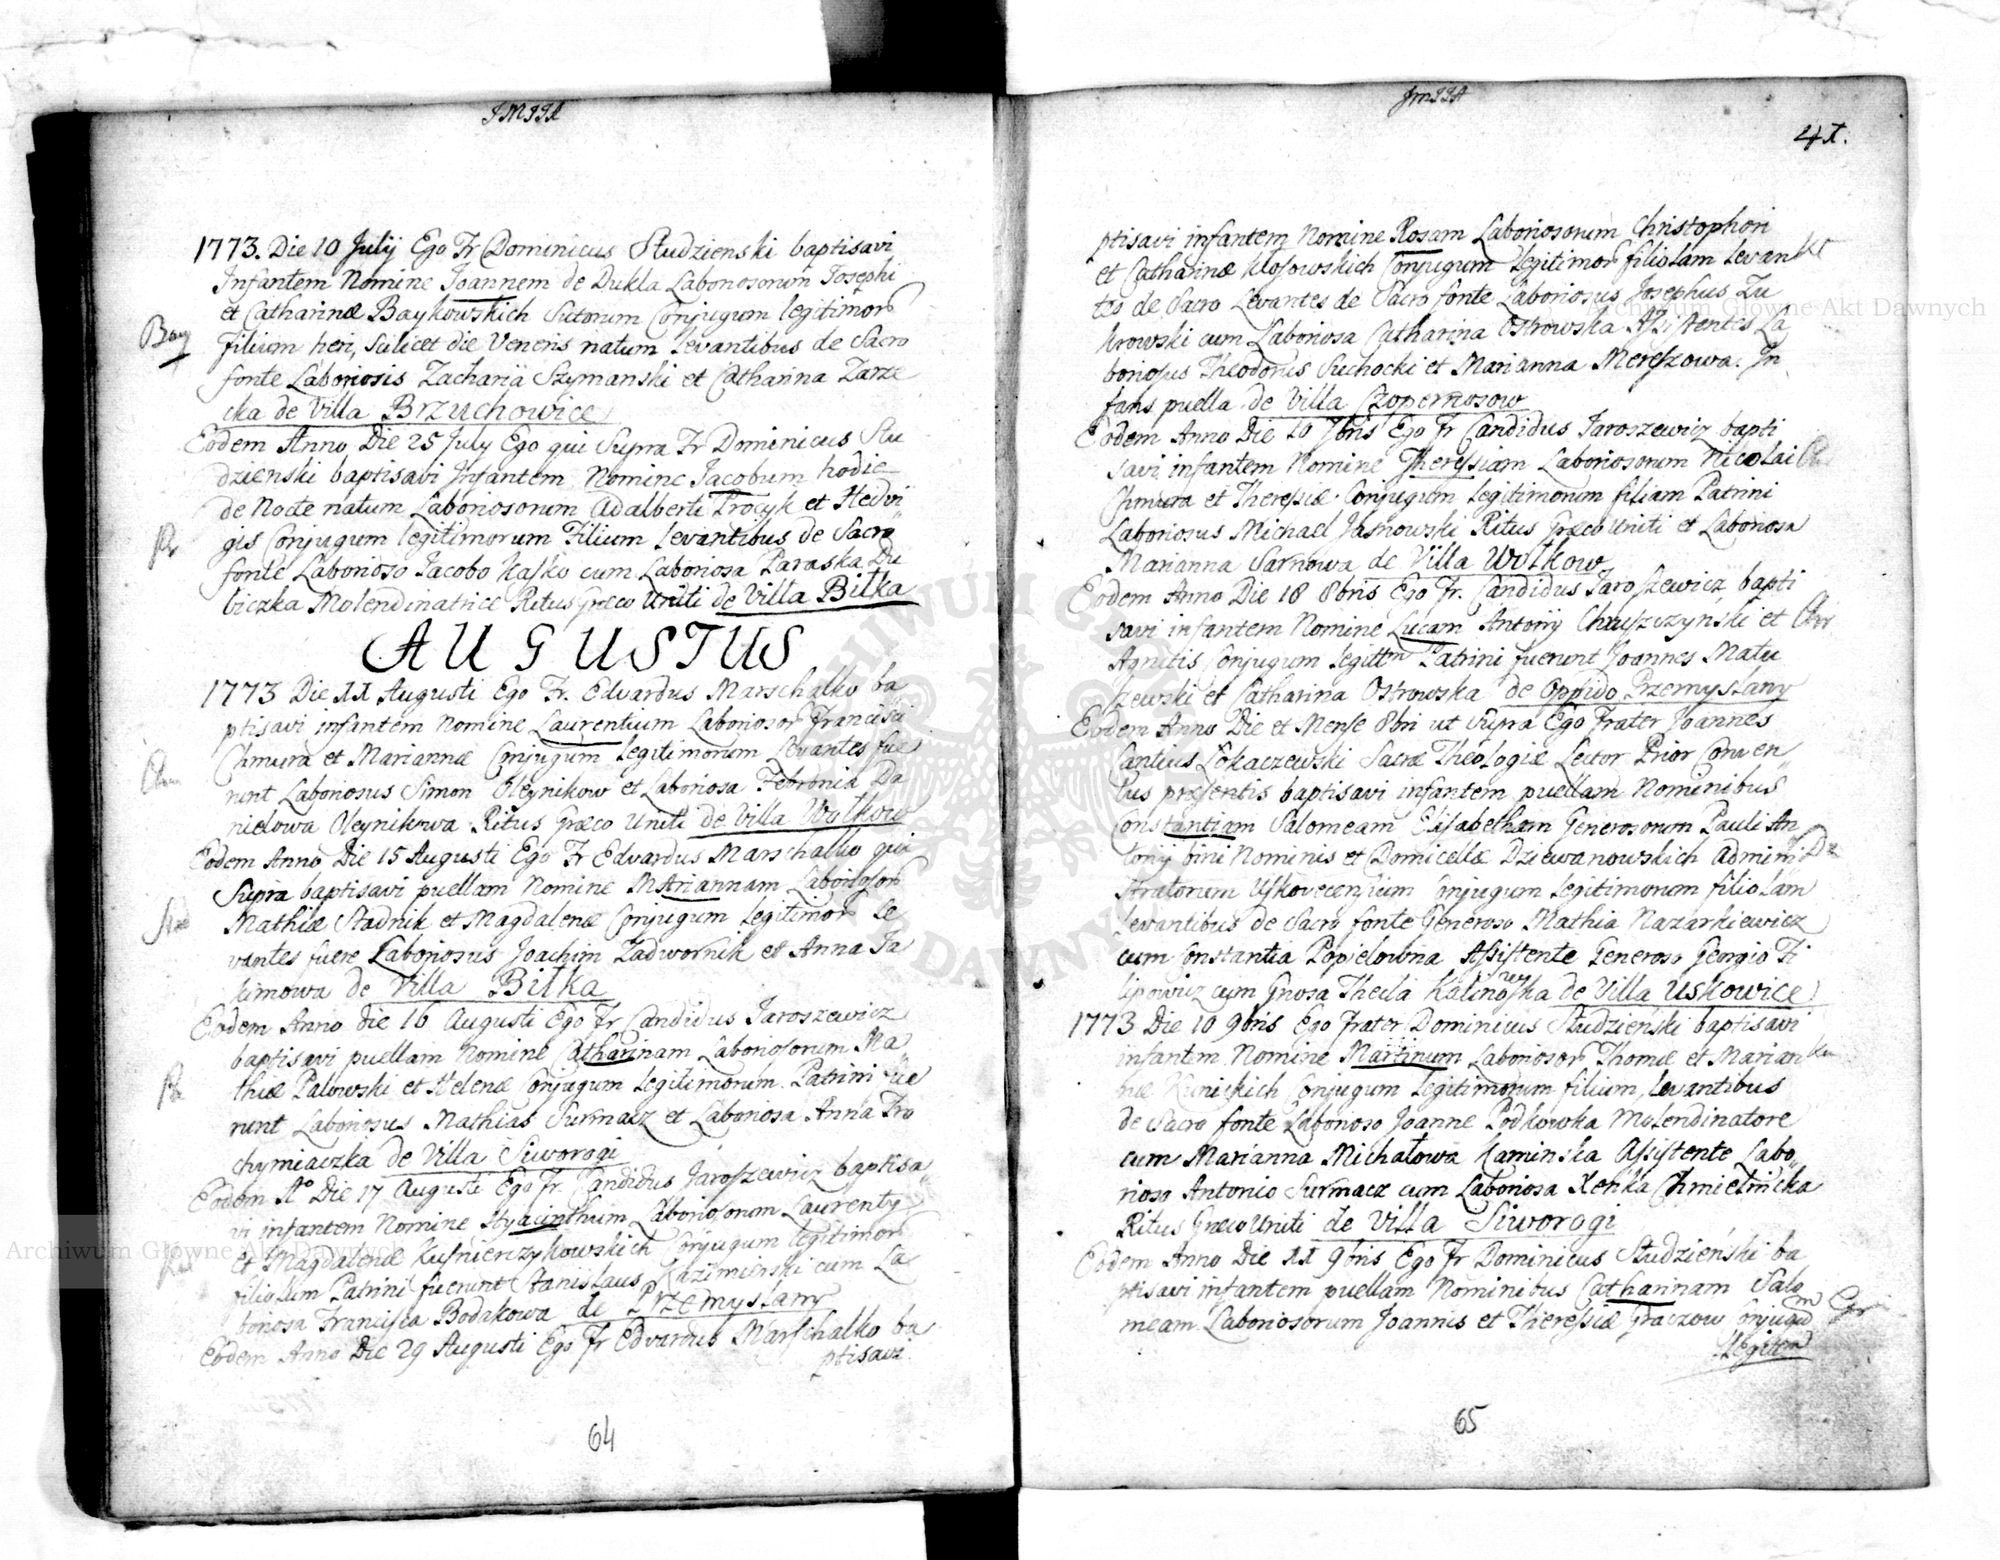 JMJJA
1773. Die 10 July Ego Fr Dominicus Studzienski baptisavi
Infantem Nomine Joannem de Dukla Laboriosorum Josephi
et Catharinæ Baykowskich Sutorum Conjugum legitimor
filium heri, Scilicet die Veneris natum Levantibus de Sacro
fonte Laboriosis Zacharia Szymanski et Catharina Zarze
cka de Villa Brzuchowice
Bay
Eodem Anno Die 25 July Ego qui Supra Fr Dominicus Stu
dzienski baptisavi Infantem Nomine Jacobum hodie
de Nocte natum Laboriosorum Adalberti Procyk et Hedvi
gis Conjugum legitimorum Filium Levantibus de Sacro
fonte Laborioso Jacobo Kasko cum Laboriosa Paraska Du
biczka Molendinatrice Ritus Græco Uniti de Villa Biłka
Pr
AUGUSTUS
1773 Die 11 Augusti Ego Fr. Edvardus Marschalko ba
ptisavi infantem Nomine Laurentium Laboriosor Francisci
Chmura et Mariannæ Conjugum Legitimorum Levantes fue
runt Laboriosus Simon Oleynikow et Laboriosa Febronia Da
nielowa Oleynikowa Ritus Græco Uniti de Villa Wołkow
Chm
Eodem Anno Die 15 Augusti Ego Fr Edvardus Marschalko qui
Supra baptisavi puellam Nomine Mariannam Laboriosor
Mathiæ Stadnik et Magdalenæ Conjugum Legitimor Le
vantes fuere Laboriosus Joachim Zadwornik et Anna Ja
kimowa de Villa Biłka
Eodem Anno die 16 Augusti Ego Fr Candidus Jaroszewicz
baptisavi puellam Nomine Catharinam Laboriosorum Ma
thiæ Palowski et Helenæ Conjugum Legitimorum. Patrini fue
runt Laboriosus Mathias Surmacz et Laboriosa Anna Tro
chymiaczka de Villa Siworogi
Pa
Eodem Ao Die 17 Augusti Ego Fr. Candidus Jaroszewicz baptisa
vi infantem Nomine Hyacinthum Laboriosorum Laurenty
et Magdalenæ Kusnierczykowskich Conjugum legitimor
filiolum Patrini fuerunt Stanislaus Kazimierski cum La
boriosa Francisca Bodakowa de Przemyslany
Eodem Anno Die 29 Augusti Ego Fr Edvardus Marschalko ba
ptisavi
64
JMJJA
41.
ptisavi infantem Nomine Rosam Laboriosorum Christophori
et Catharinæ Klosowskich Conjugum Legitimor filiolam Levan
tes de Sacro Levantes de Sacro fonte Laboriosus Josephus Zu
krowski cum Laboriosa Catharina Ostrowska Assistentes La
boriosus Theodorus Suchocki et Marianna Mereszowa. In
fans puella de Villa Czopernosow
Eodem Anno Die 10 7bris Ego Fr Candidus Jaroszewicz bapti
savi infantem Nomine Theressiam Laboriosorum Nicolai
Chmura et Theressiæ Conjugum Legitimorum filiam Patrini
Laboriosus Michael Jasnowski Ritus Græco Uniti et Laboriosa
Marianna Sarnowa de Villa Wołkow
Eodem Anno Die 18 8bris Ego Fr. Candidus Jaroszewicz bapti
savi infantem Nomine Lucam Antonij Chruszczyński et
Agnetis Conjugum legittm Patrini fuerunt Joannes Matu
szewski et Catharina Ostrowska de Oppido Przemyslany
Chr
Eodem Anno Die et Mense 8bri ut Supra Ego Frater Joannes
Cantius Łokaczewski Sacræ Theologiæ Lector Prior Conven
tus præsentis baptisavi infantem puellam Nominibus
Constantiam Salomeam Elisabetham Generosorum Pauli An
tonij bini Nominis et Domicellæ Dziewanowskich Admini
stratorum Uskovecensium Conjugum Legitimorum filiolam
Levantibus de Sacro fonte Generoso Mathia Nazarkiewicz
cum Constantia Popielowna Assistente Generoso Georgio Fi
lipowicz cum Gnosa Thecla Kalinowska de Villa Uskowice
Dz
1773 Die 10 9bris Ego Frater Dominicus Studzieński baptisavi
infantem Nomine Martinum Laboriosor Thomæ et Marian
næ Kunickich Conjugum Legitimorum filium, Levantibus
de Sacro fonte Laborioso Joanne Podkowka Molendinatore
cum Marianna Michałowa Kaminska Assistente Labo
rioso Antonio Surmacz cum Laboriosa Xeńka Chmielnicka
Ritus Græco Uniti de Villa Siworogi
Ku
Eodem Anno Die 11 9bris Ego Fr Dominicus Studzieński ba
ptisavi infantem puellam Nominibus Catharinam Salo
meam Laboriosorum Joannis et Theressiæ Graczow Conjugum
Legitim
Gr
65
Archiwum Główne Akt Dawnych
Archiwum Główne Akt Dawnych